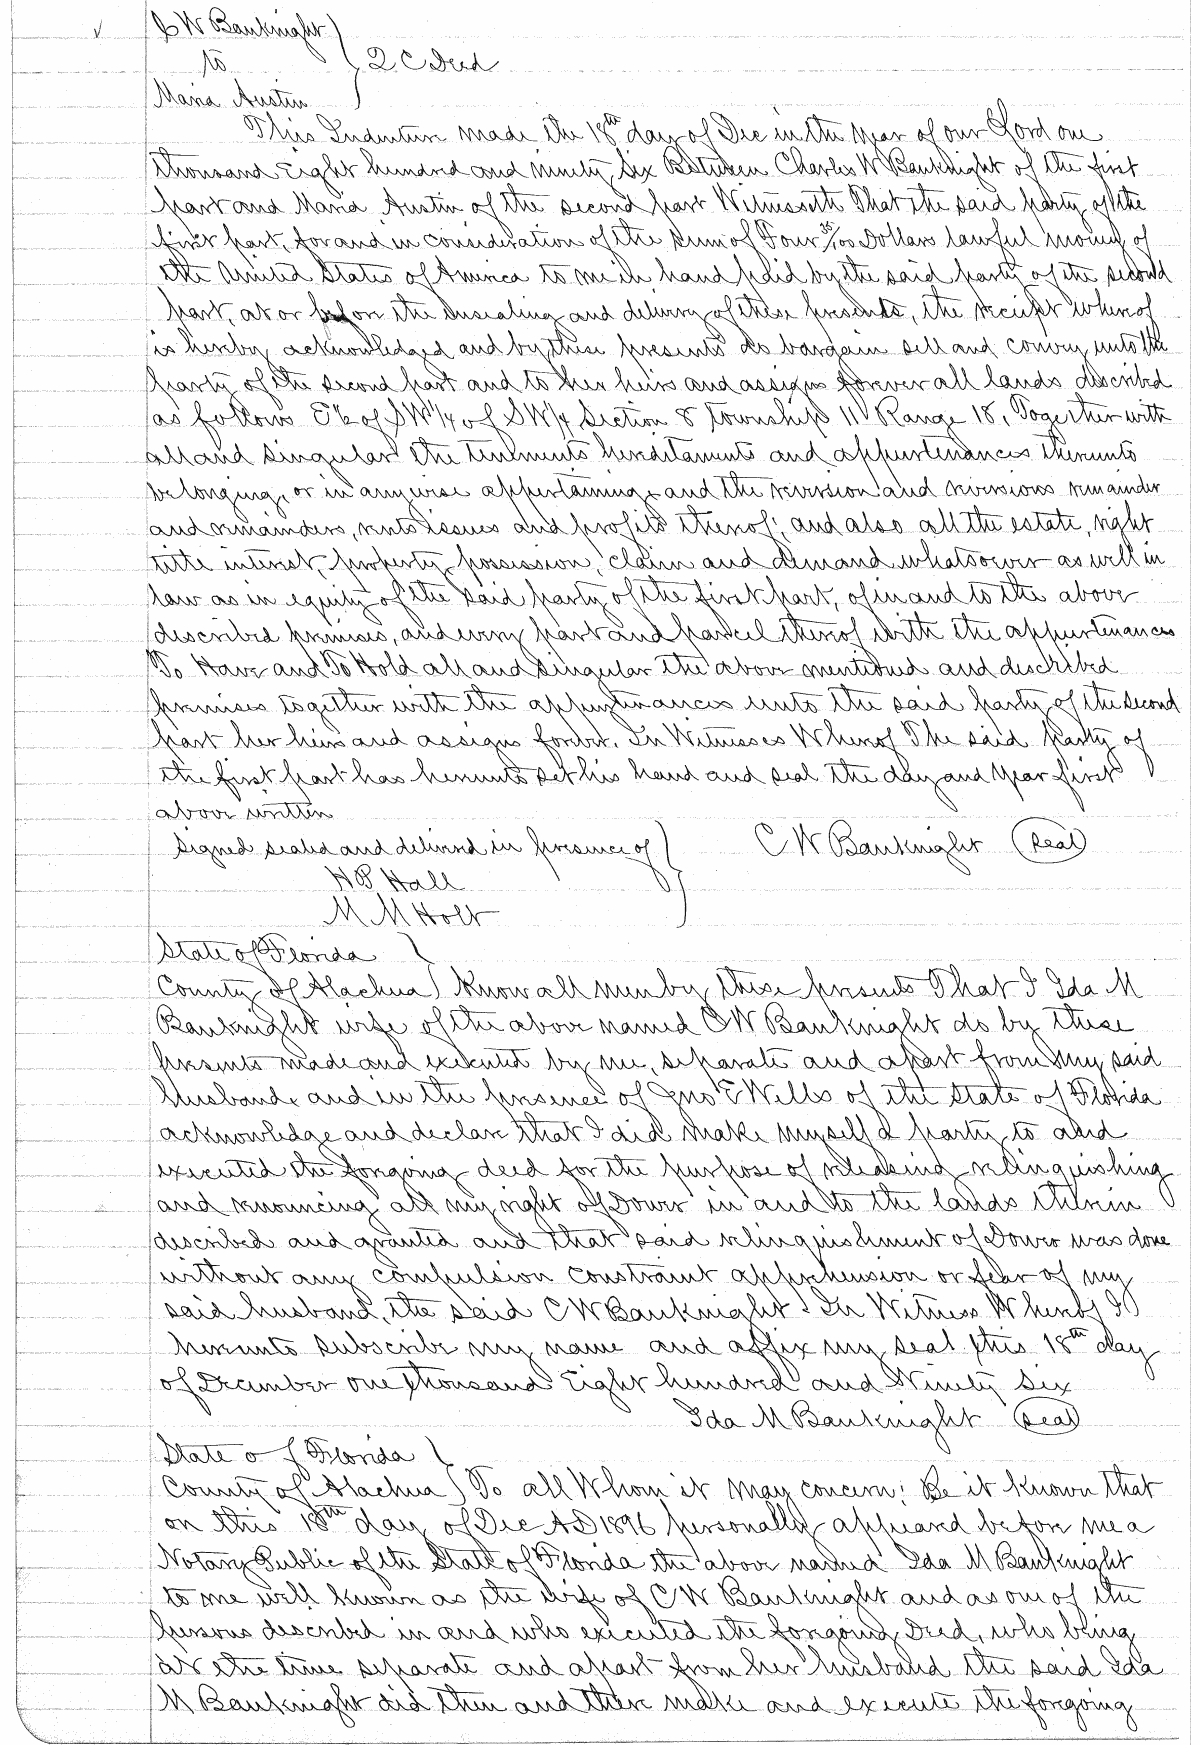 C W Bauknight
to } Q C Deed
Maria Austin
This Indenture made the 18th day of Dec in the year of our Lord one
thousand Eight hundred and ninety six Between Charles W Bauknight of the first
part and Maria Austin of the second part Witnesseth That the said party of the
first part, for and in consideration of the sum of Four 35/100 Dollars lawful money of
the United States of America to me in hand paid by the said party of the second
part, at or before the ensealing and delivery of these presents, the receipt whereof
is hereby acknowledged and by these presents do bargain sell and convey unto the
party of the second part and to her heirs and assigns forever all lands described
as follows E½ of SW¼ of SW¼ Section 8 township 11 Range 18, Together with
all and singular the tenements hereditaments and appurtenances thereunto
belonging, or in anywise appertaining, and the reversion and reversions remainder
and remainders, rents issues and profits thereof; and also all the estate, right
title interest, property, possession, claim and demand whatsoever as well in
law as in equity of the said party of the first part, of in and to the above
described premises, and every part and parcel thereof with the appurtenances
To Have and To Hold all and singular the above mentioned and described
premises together with the appurtenances unto the said party of the second
part her heirs and assigns forever. In Witness Whereof The said party of
the first part has hereunto set his hand and seal the day and year first
above written
Signed sealed and delivered in presence of } C W Bauknight (Seal)
H P Hall
M M Holt
State of Florida }
County of Alachua } Know all men by these presents That I Ida M
Bauknight wife of the above named C W Bauknight do by these
presents made and executed by me, separate and apart from my said
husband, and in the presence of Jno E Wells of the State of Florida
acknowledge and declare that I did make myself a party to and
executed the forgoing deed for the purpose of releasing relinquishing
and renouncing all my right of Dower in and to the lands therein
described and granted and that said relinquishment of Dower was done
without any compulsion constraint apprehension or fear of my
said husband, the said C W Bauknight. In Witness Whereof I
hereunto subscribe my name and affix my seal this 18th day
of December one thousand Eight hundred and Ninety Six
Ida M Bauknight (Seal)
State of Florida }
County of Alachua } To all Whom it may concern: Be it known that
on this 18th day of Dec AD 1896 personally appeared before me a
Notary Public of the State of Florida the above named Ida M Bauknight
to me well known as the wife of C W Bauknight and as one of the
persons described in and who executed the forgoing Deed, who being
at the time separate and apart from her husband the said Ida
M Bauknight did then and there make and execute the forgoing